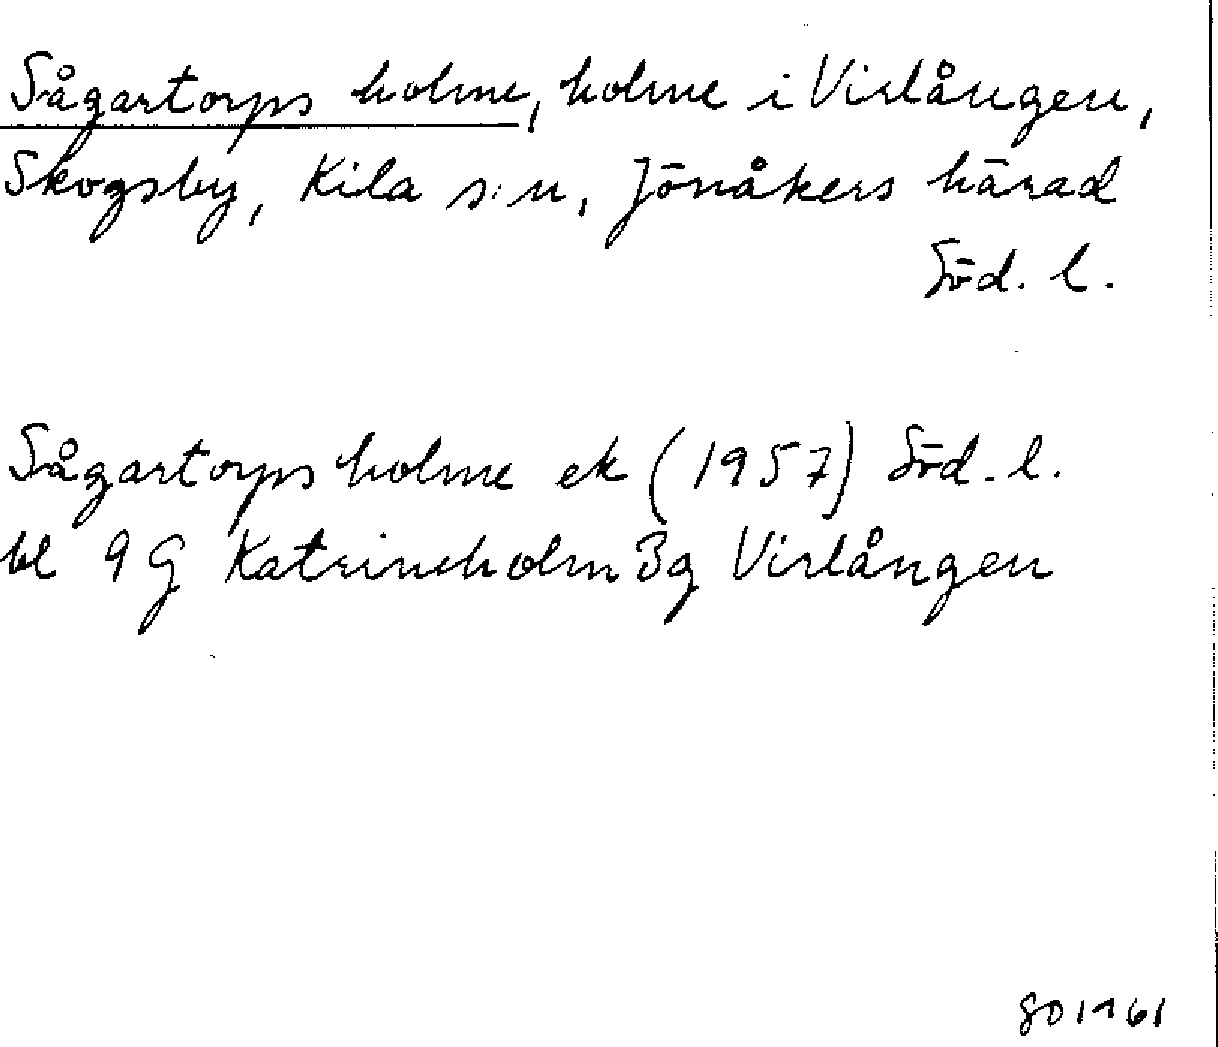 Sågartorps holme, holme i Virlången,
Skogsby, Kila s:n, Jönåkers härad
Söd. l.
Sågartorps holme ek (1957) Söd. l.
bl 9 G Katrineholm 3g Virlången
GO 1961